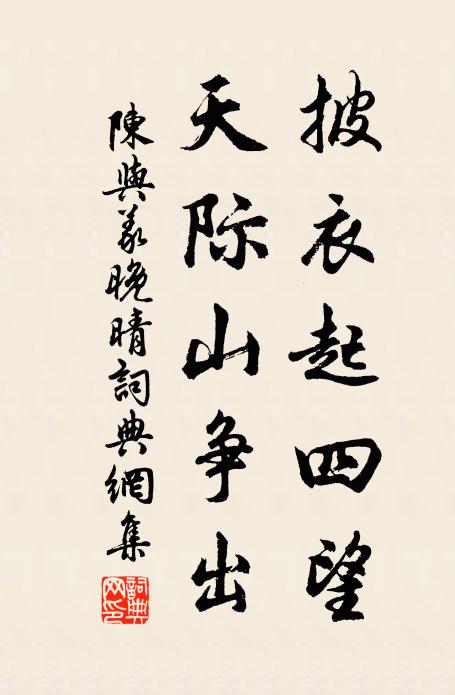 披衣起四望
天际山争出
陳與義晚晴詞典網集
詞典网印